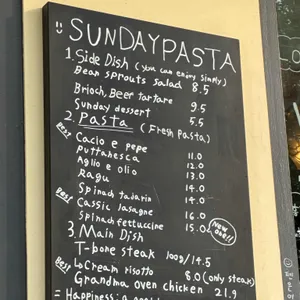 SUNDAYPASTA
1. Side Dish (you can enjoy simply)
Bean sprouts salad 8.5
Brioch, Beer tartare 9.5
Sunday dessert 5.5
2. Pasta (Fresh Pasta)
Best Cacio e pepe 11.0
Puttanesca 12.0
Aglio e olio 13.0
Ragu 14.0
Spinach tajarin 14.0
Best Cassic lasagne 16.0
Spinach fettuccine 15.0 New one!!
3. Main Dish
T-bone steak 100g/14.5
Best Cream risotto 8.0 (only steak)
Grandma oven chicken 21.9
= Happiness: